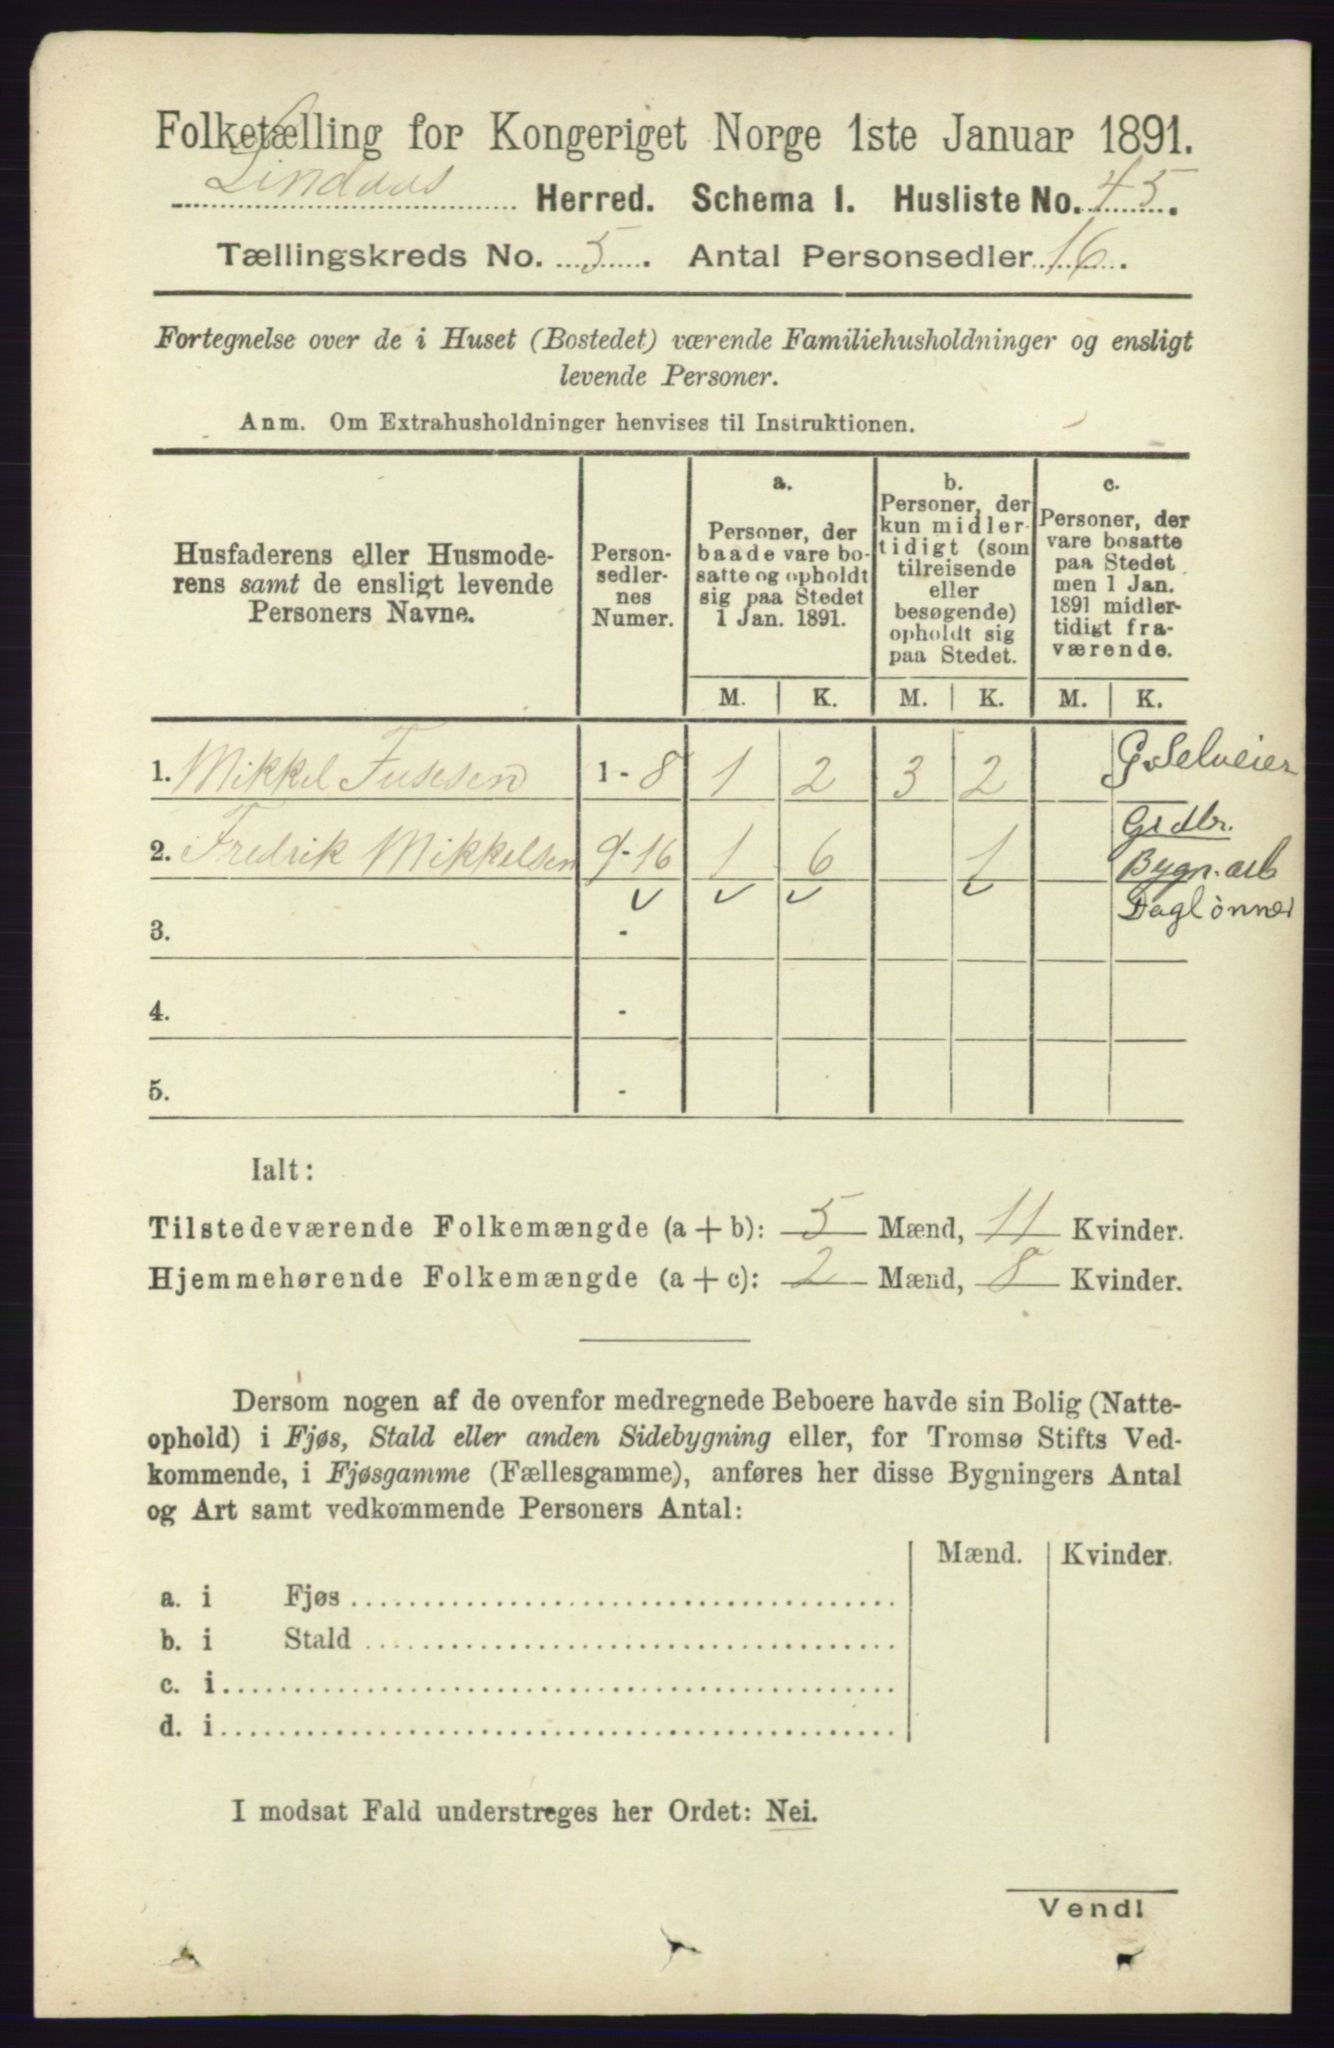 Folketælling for Kongeriget Norge 1ste Januar 1891.
Lindaas Herred. Schema I. Husliste No. 45.
Tællingskreds No. 5. Antal Personsedler 16.
Fortegnelse over de i Huset (Bostedet) værende Familiehusholdninger og ensligt
levende Personer.
Anm. Om Extrahusholdninger henvises til Instruktionen.
Husfaderens eller Husmode-
rens samt de ensligt levende
Personers Navne.
Person-
sedler-
nes
Numer.
a.
Personer, der
baade vare bo-
satte og opholdt
sig paa Stedet
1 Jan. 1891.
b.
Personer, der
kun midler-
tidigt (som
tilreisende
eller
besøgende)
opholdt sig
paa Stedet.
c.
Personer, der
vare bosatte
paa Stedet
men 1 Jan.
1891 midler-
tidigt fra-
værende.
M. K. M. K. M. K.
1. Mikkel 1 - 8 1 2 3 2 G. Selveier
2. Fredrik Mikkelsen 9-16 1 6 1 Grdbr.
Bygn. arb
Daglønner
3. -
4. -
5. -
Ialt:
Tilstedeværende Folkemængde (a + b): 5 Mænd, 11 Kvinder.
Hjemmehørende Folkemængde (a + c): 2 Mænd, 8 Kvinder.
Dersom nogen af de ovenfor medregnede Beboere havde sin Bolig (Natte-
ophold) i Fjøs, Stald eller anden Sidebygning eller, for Tromsø Stifts Ved-
kommende, i Fjøsgamme (Fællesgamme), anføres her disse Bygningers Antal
og Art samt vedkommende Personers Antal:
Mænd. Kvinder.
a. i Fjøs
b. i Stald
c. i
d. i
I modsat Fald understreges her Ordet: Nei.
Vend!